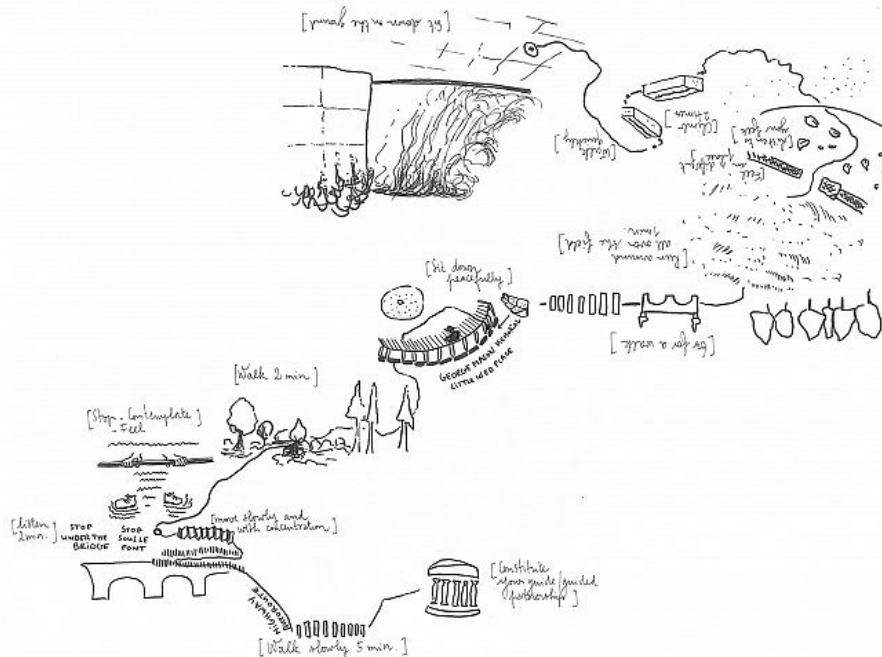 [Sit down on the ground]
[Walk
quickly]
[Climb
2 times]
[Listen to
your feet]
[Feel
in a different
place]
[Run around
all over the field]
1 min.
[Sit down
peacefully]
[Go for a walk]
GEORGE MASON MEMORIAL
LITTLE WEB PLACE
[Walk 2 min]
[Stop - Contemplate
- Feel]
[listen
2 min.]
STOP
UNDER THE
BRIDGE
STOP
SOUS LE
PONT
[move slowly and
with concentration]
HIGHWAY
AUTOROUTE
[Walk slowly 5 min.]
[Constitute
your guide/guided
partnership]